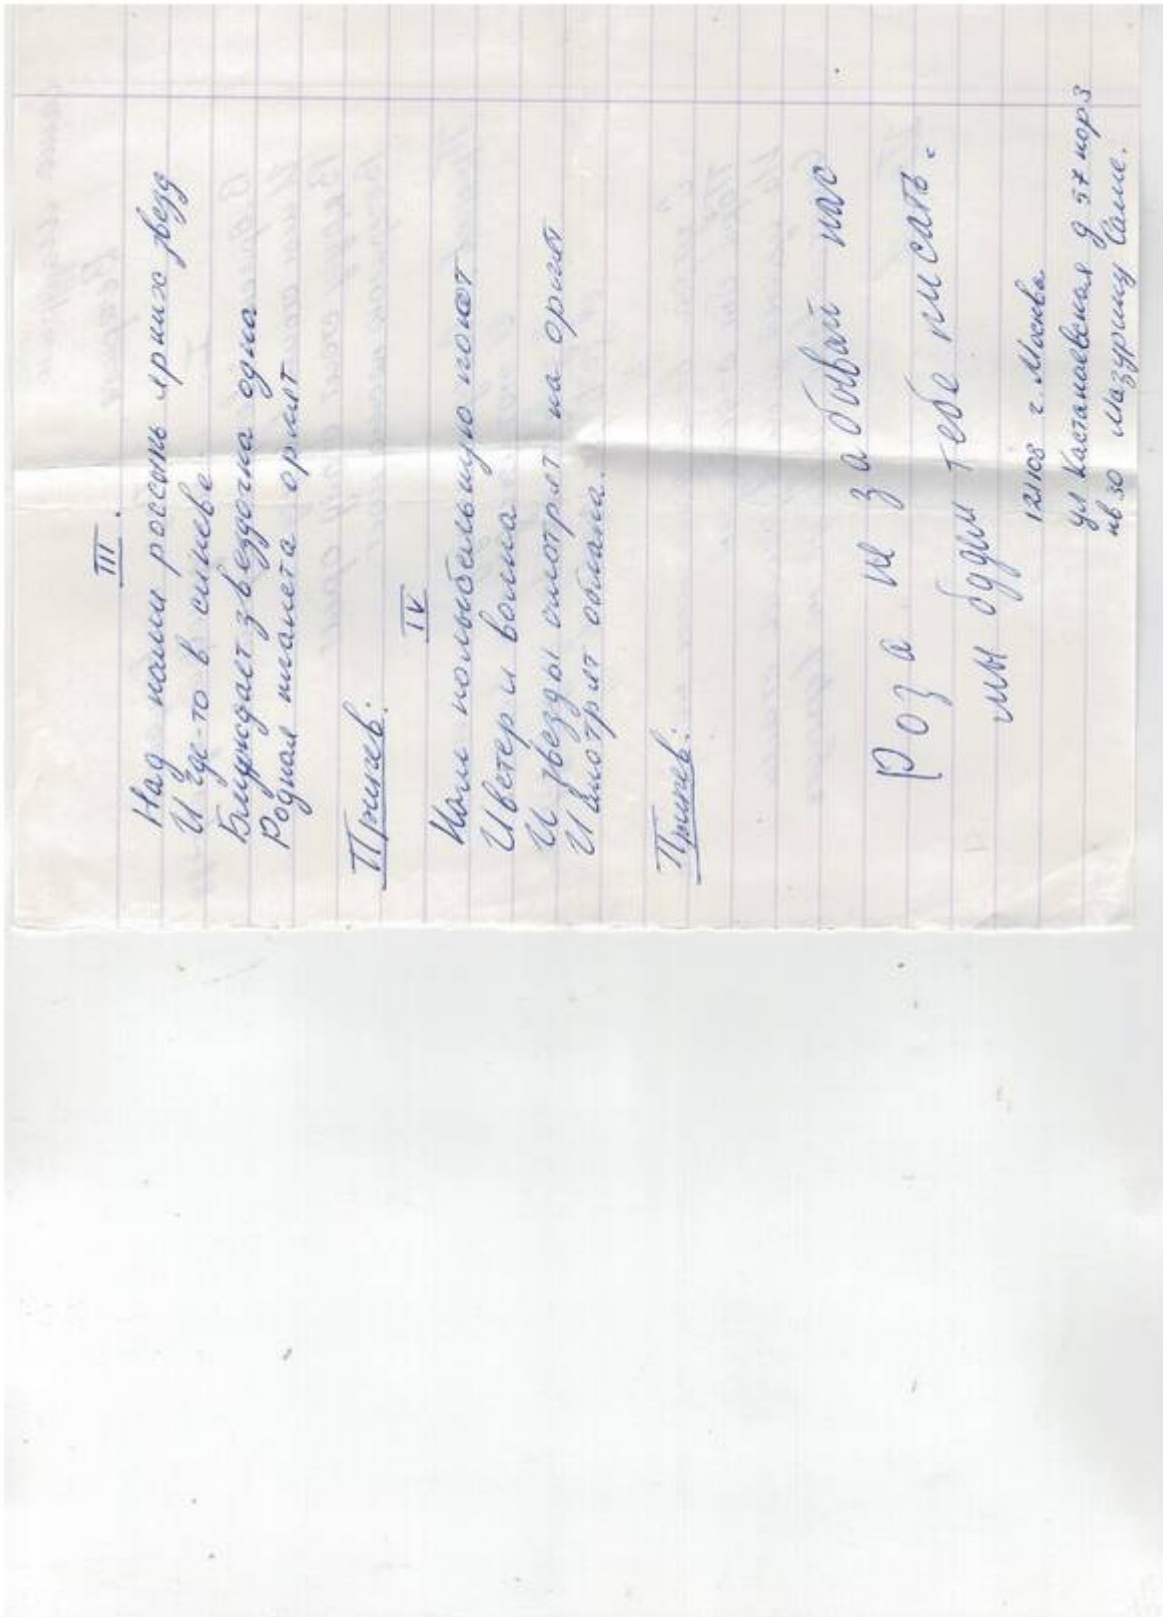 III.
Над нами россыпь ярких звезд
И где-то в синеве
Блуждает звездочка одна
Родная планета орлят
Припев:
IV
Нам колыбельную поют
И ветер и волна
И звезды смотрят на орлят
И смотрят облака.
Припев:
Роза не забывай нас
мы будем тебе писать.
121108 г. Москва
ул Кастанаевская д 57 кор 3
кв 30 Мазурину Саше.